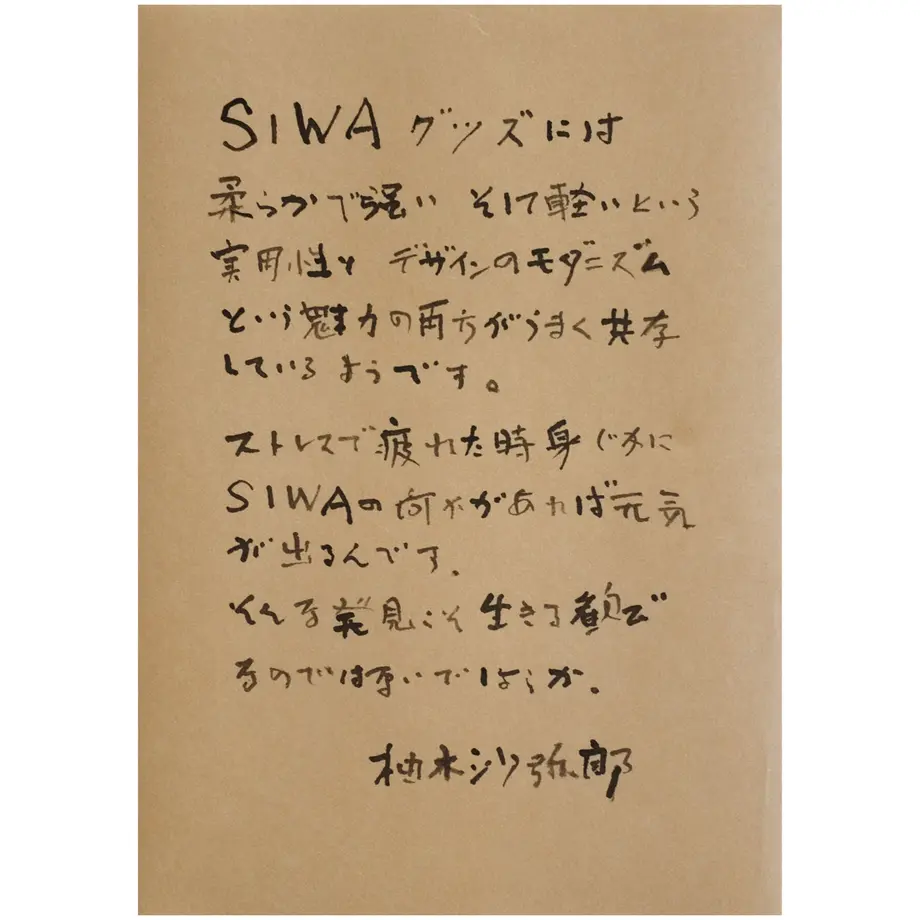 SIWA グッズには
柔らかで強い そして軽いという
実用性と デザインのモダニズム
という魅力の両方がうまく共存
しているようです。
ストレスで疲れた時身ぢかに
SIWAの何かがあれば元気
が出るんです。
そんな発見こそ生きる
なのでは ないでしょうか。
柚木沙弥郎